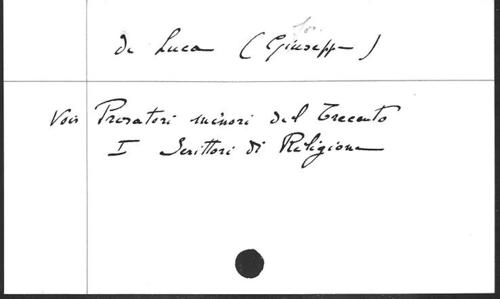 de Luca (Giuseppe)
Voir Prosatori minori del Trecento
I Scrittori di Religione